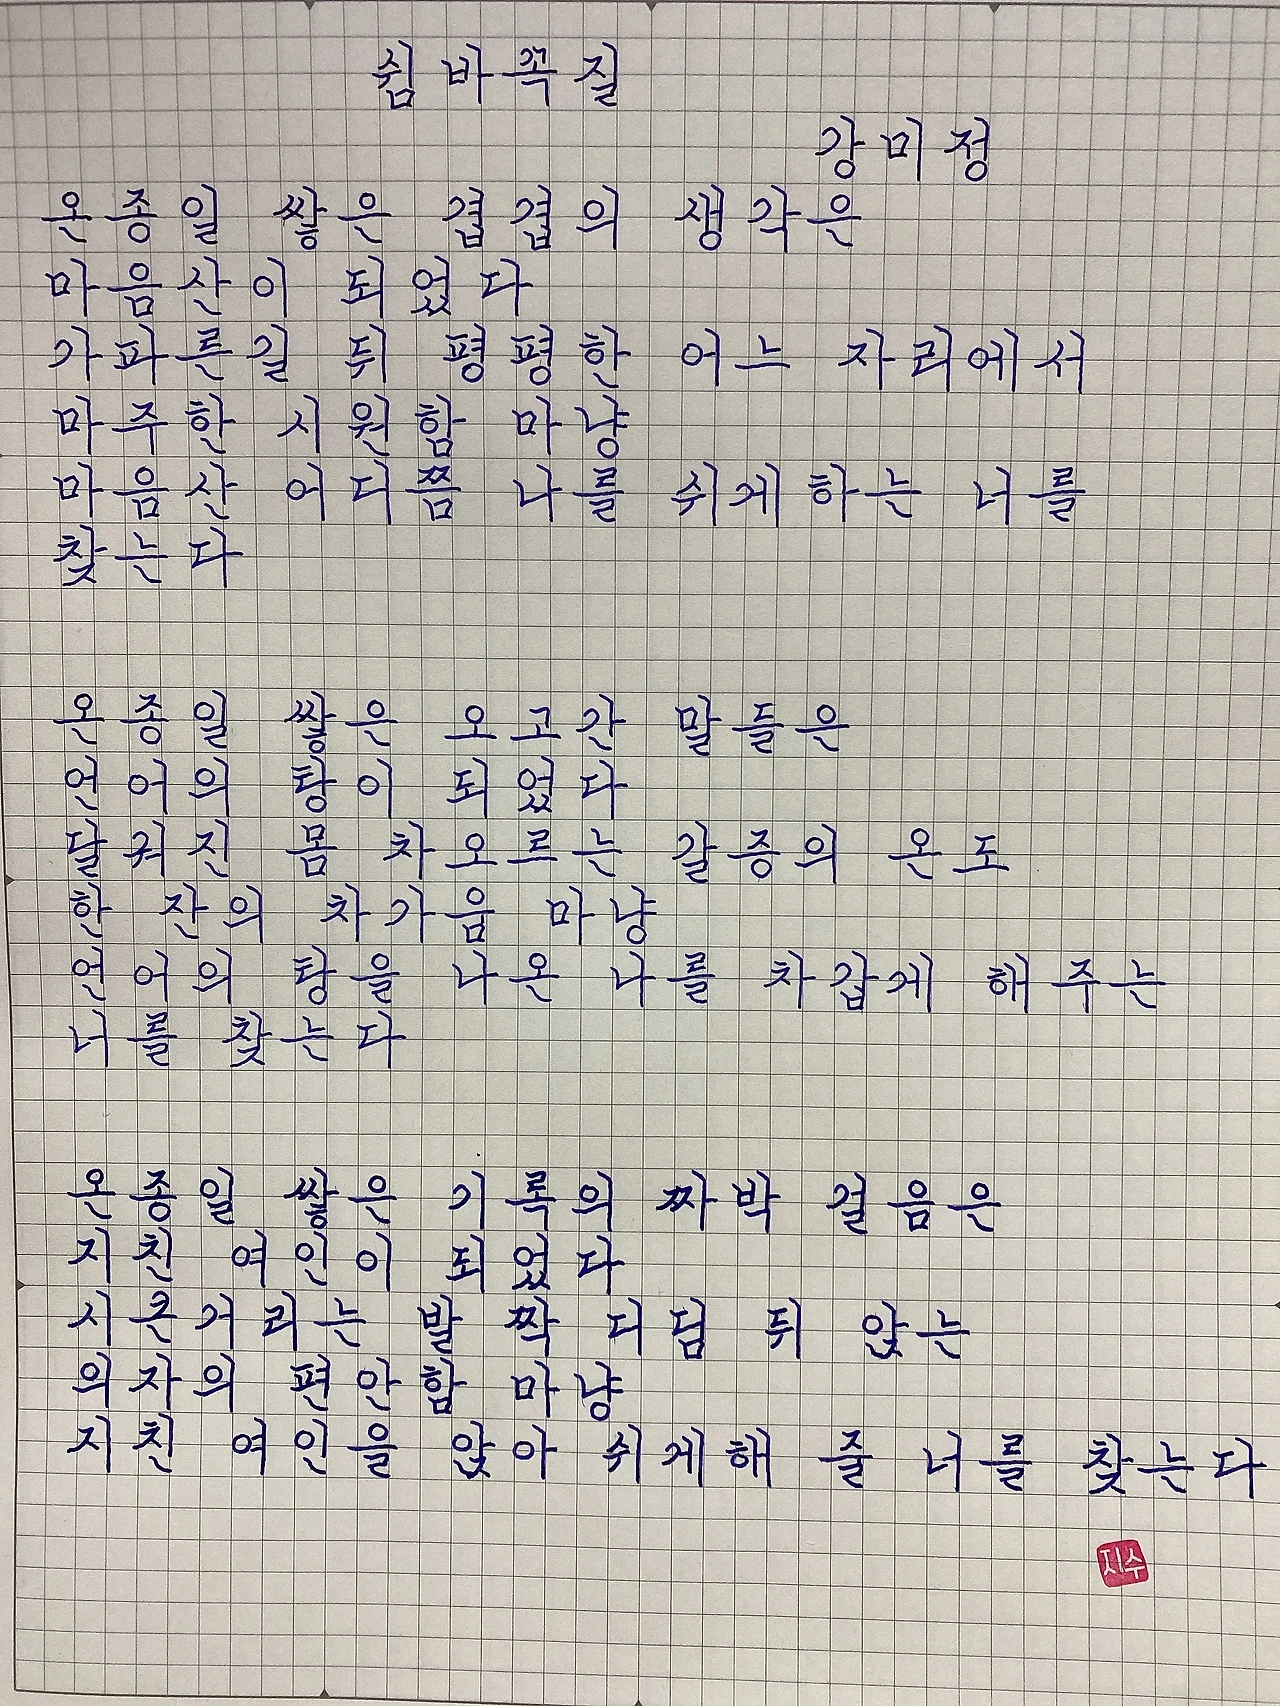 쉼바꼭질
강미정
온종일 쌓은 겹겹의 생각은
마음산이 되었다
가파른길 뒤 평평한 어느 자리에서
마주한 시원함 마냥
마음산 어디쯤 나를 쉬게하는 너를
찾는다
온종일 쌓은 오고간 말들은
언어의 탕이 되었다
달궈진 몸 차오르는 갈증의 온도
한 잔의 차가움 마냥
언어의 탕을 나온 나를 차갑게 해주는
너를 찾는다
온종일 쌓은 기록의 짜박 걸음은
지친 여인이 되었다
시큰거리는 발 짝 디딤 뒤 앉는
의자의 편안함 마냥
지친 여인을 앉아 쉬게해 줄 너를 찾는다
지수